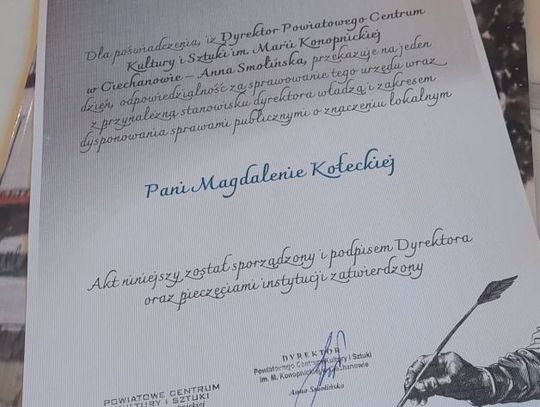 Dla poświadczenia, iż Dyrektor Powiatowego Centrum
Kultury i Sztuki im. Marii Konopnickiej
w Ciechanowie – Anna Smolińska, przekazuje na jeden
dzień odpowiedzialność za sprawowanie tego urzędu wraz
z przynależną stanowisku dyrektora władzą i zakresem
dysponowania sprawami publicznymi o znaczeniu lokalnym
Pani Magdalenie Kołeckiej
Akt niniejszy został sporządzony i podpisem Dyrektora
oraz pieczęciami instytucji zatwierdzony
DYREKTOR
Powiatowego Centrum Kultury i Sztuki
im. M. Konopnickiej w Ciechanowie
Anna Smolińska
POWIATOWE CENTRUM
KULTURY I SZTUKI